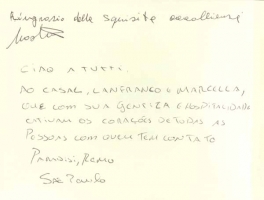 Ringrazio della squisita accoglienza
CIAO A TUTTI.
AO CASAL, LANFRANCO E MARCELLA,
QUE COM SUA GENTILEZA E HOSPITALIDADE
CATIVAM OS CORAÇÕES DE TODAS AS
PESSOAS COM QUEM TEM CONTATO
REMO
SÃO PAULO